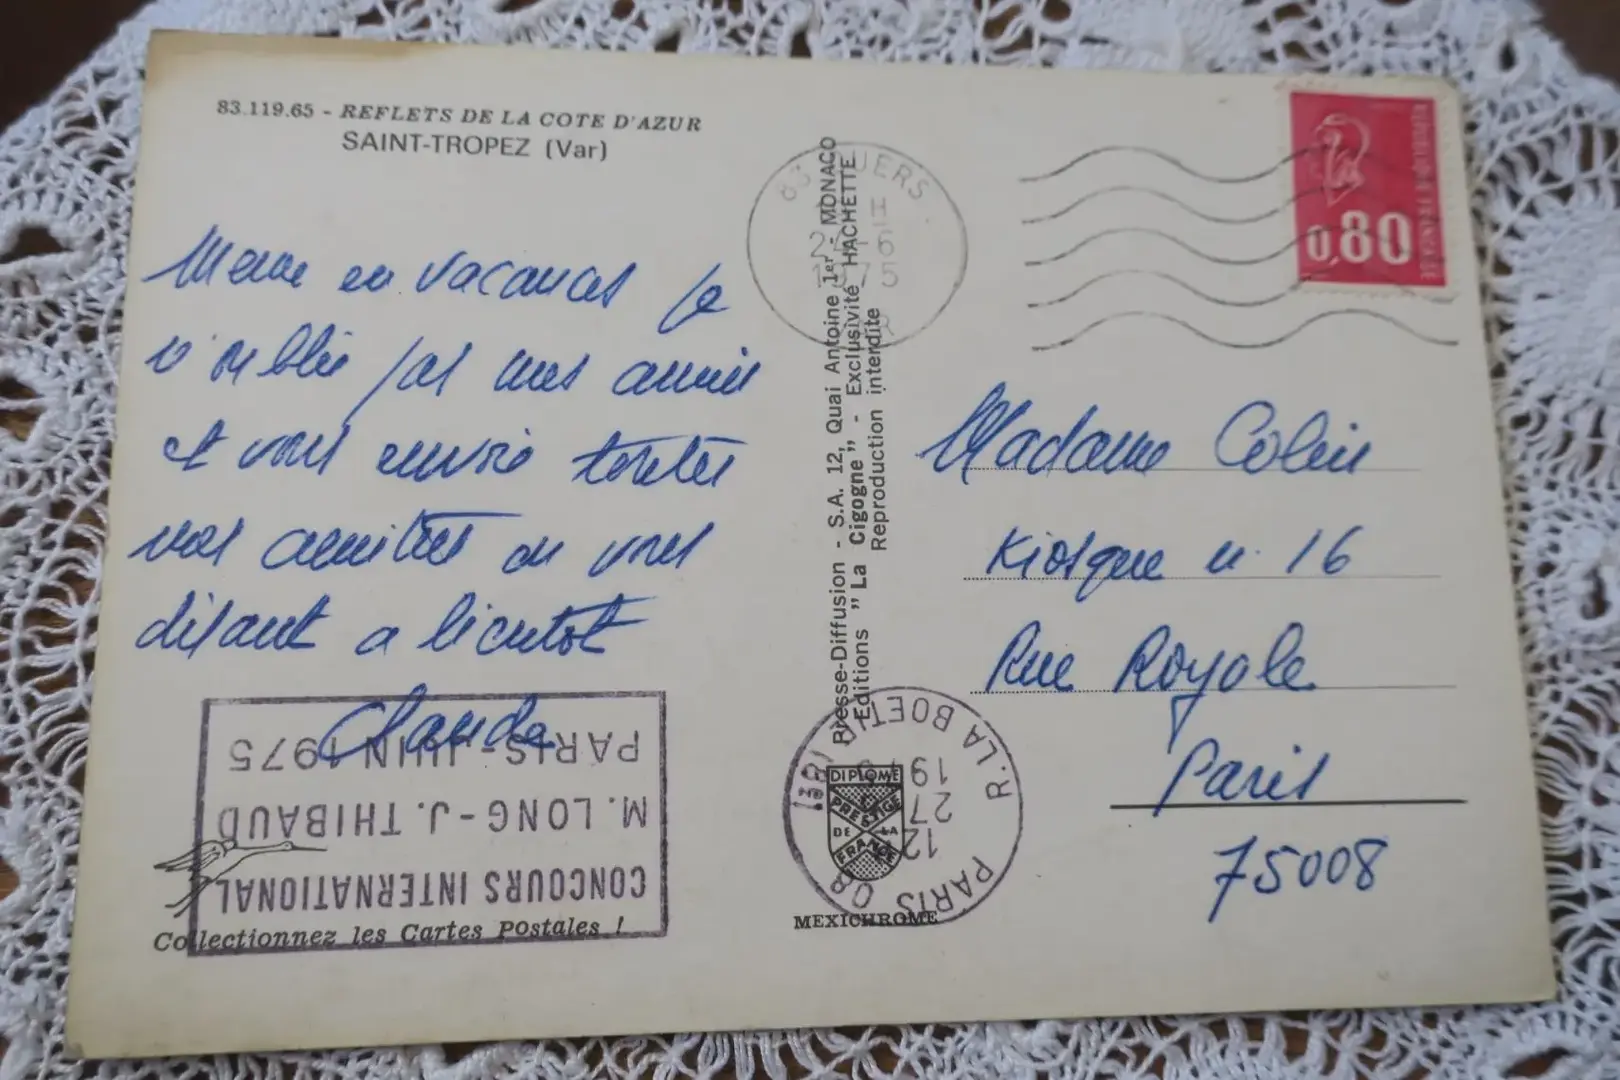 83.119.65 - REFLETS DE LA COTE D'AZUR
SAINT-TROPEZ (Var)
Meme en vacances je
n'oublie pas mes amies
et vous envoie toutes
mes amitiés en vous
disant a bientot
Claude
CONCOURS INTERNATIONAL
M. LONG-J. THIBAUD
PARIS-JUIN 1975
Collectionnez les Cartes Postales !
Presse-Diffusion - S.A. 12, Quai Antoine 1er - MONACO
Editions "La Cigogne" - Exclusivité HACHETTE
Reproduction interdite
83 UERS
H
25-6
1975
VAR
REPUBLIQUE FRANCAISE
0,80
Madame Colin
Kiosque n. 16
Rue Royale
Paris
75008
PARIS 08 R. LA BOETIE (8E)
12
27
19
DIPLOME
PRESTIGE
DE LA
FRANCE
MEXICHROME